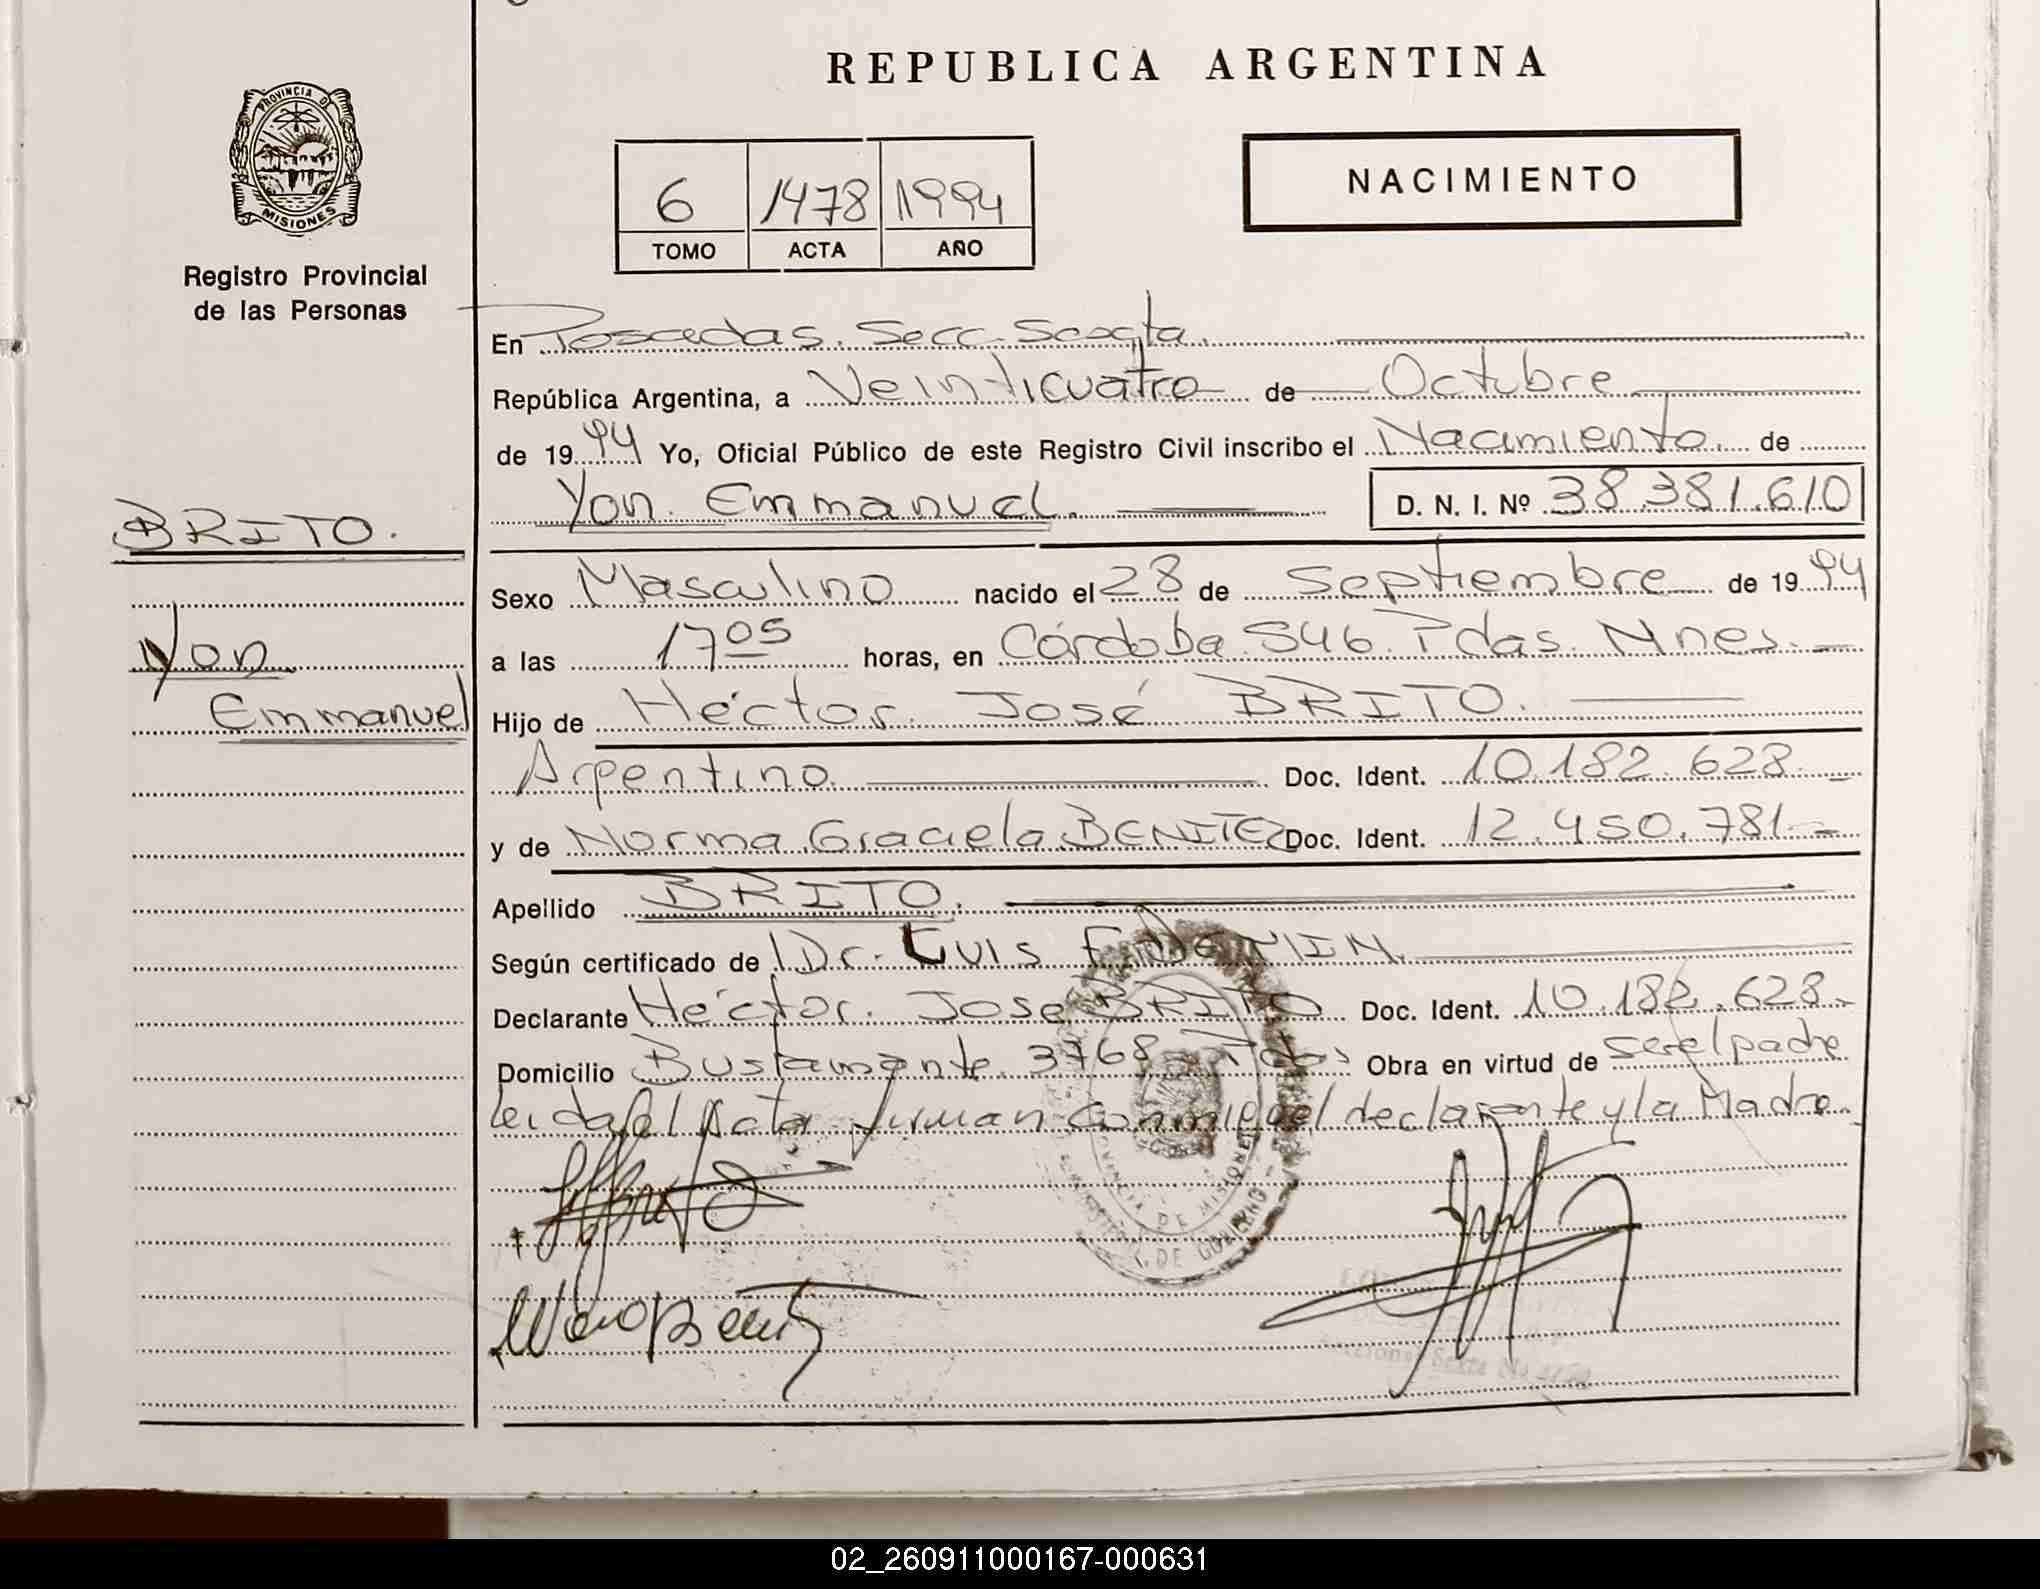 REPUBLICA ARGENTINA
PROVINCIA DE
MISIONES
Registro Provincial
de las Personas
NACIMIENTO
6 1478 1994
TOMO ACTA AÑO
En Posadas. Secc. Sexta.
República Argentina, a Veinticuatro de Octubre
de 1994 Yo, Oficial Público de este Registro Civil inscribo el Nacimiento. de
Yon. Emmanuel. D. N. I. Nº 38.381.610
BRITO.
Yon
Emmanuel
Sexo Masculino nacido el 28 de Septiembre de 1994
a las 17 05 horas, en Córdoba 546. Pdas. Mnes.
Hijo de Héctor José BRITO.
Argentino. Doc. Ident. 10.182.628
y de Norma Graciela BENITEZ Doc. Ident. 12.450.781
Apellido BRITO.
Según certificado de Dr. Luis
Declarante Héctor. José BRITO Doc. Ident. 10.182.628
Domicilio Bustamante 3768 Pdas Obra en virtud de ser el padre
Leida el Acta firman conmigo el declarante y la Madre.
PROVINCIA DE MISIONES
DE GOBIERNO
Sexta
02_260911000167-000631